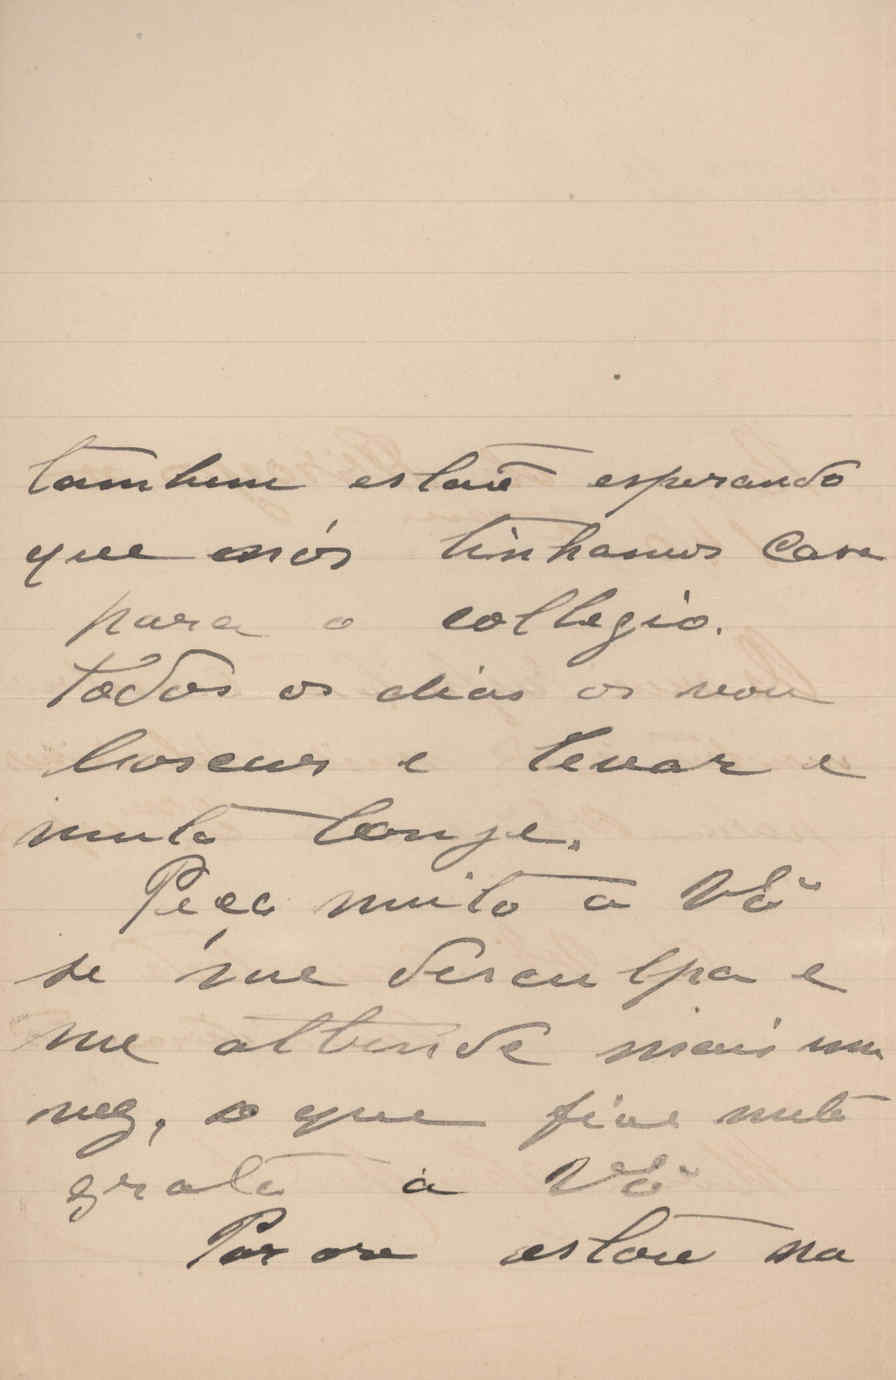 tambem estou esperando
que nós tinhamos Casa
para o collegio.
todos os dias os vou
buscar e levar e
muito longe.
Peço muito a Vª
se me desculpa e
me attende mais um
vez, o que fico muito
grata a Vª
Por ora estou na